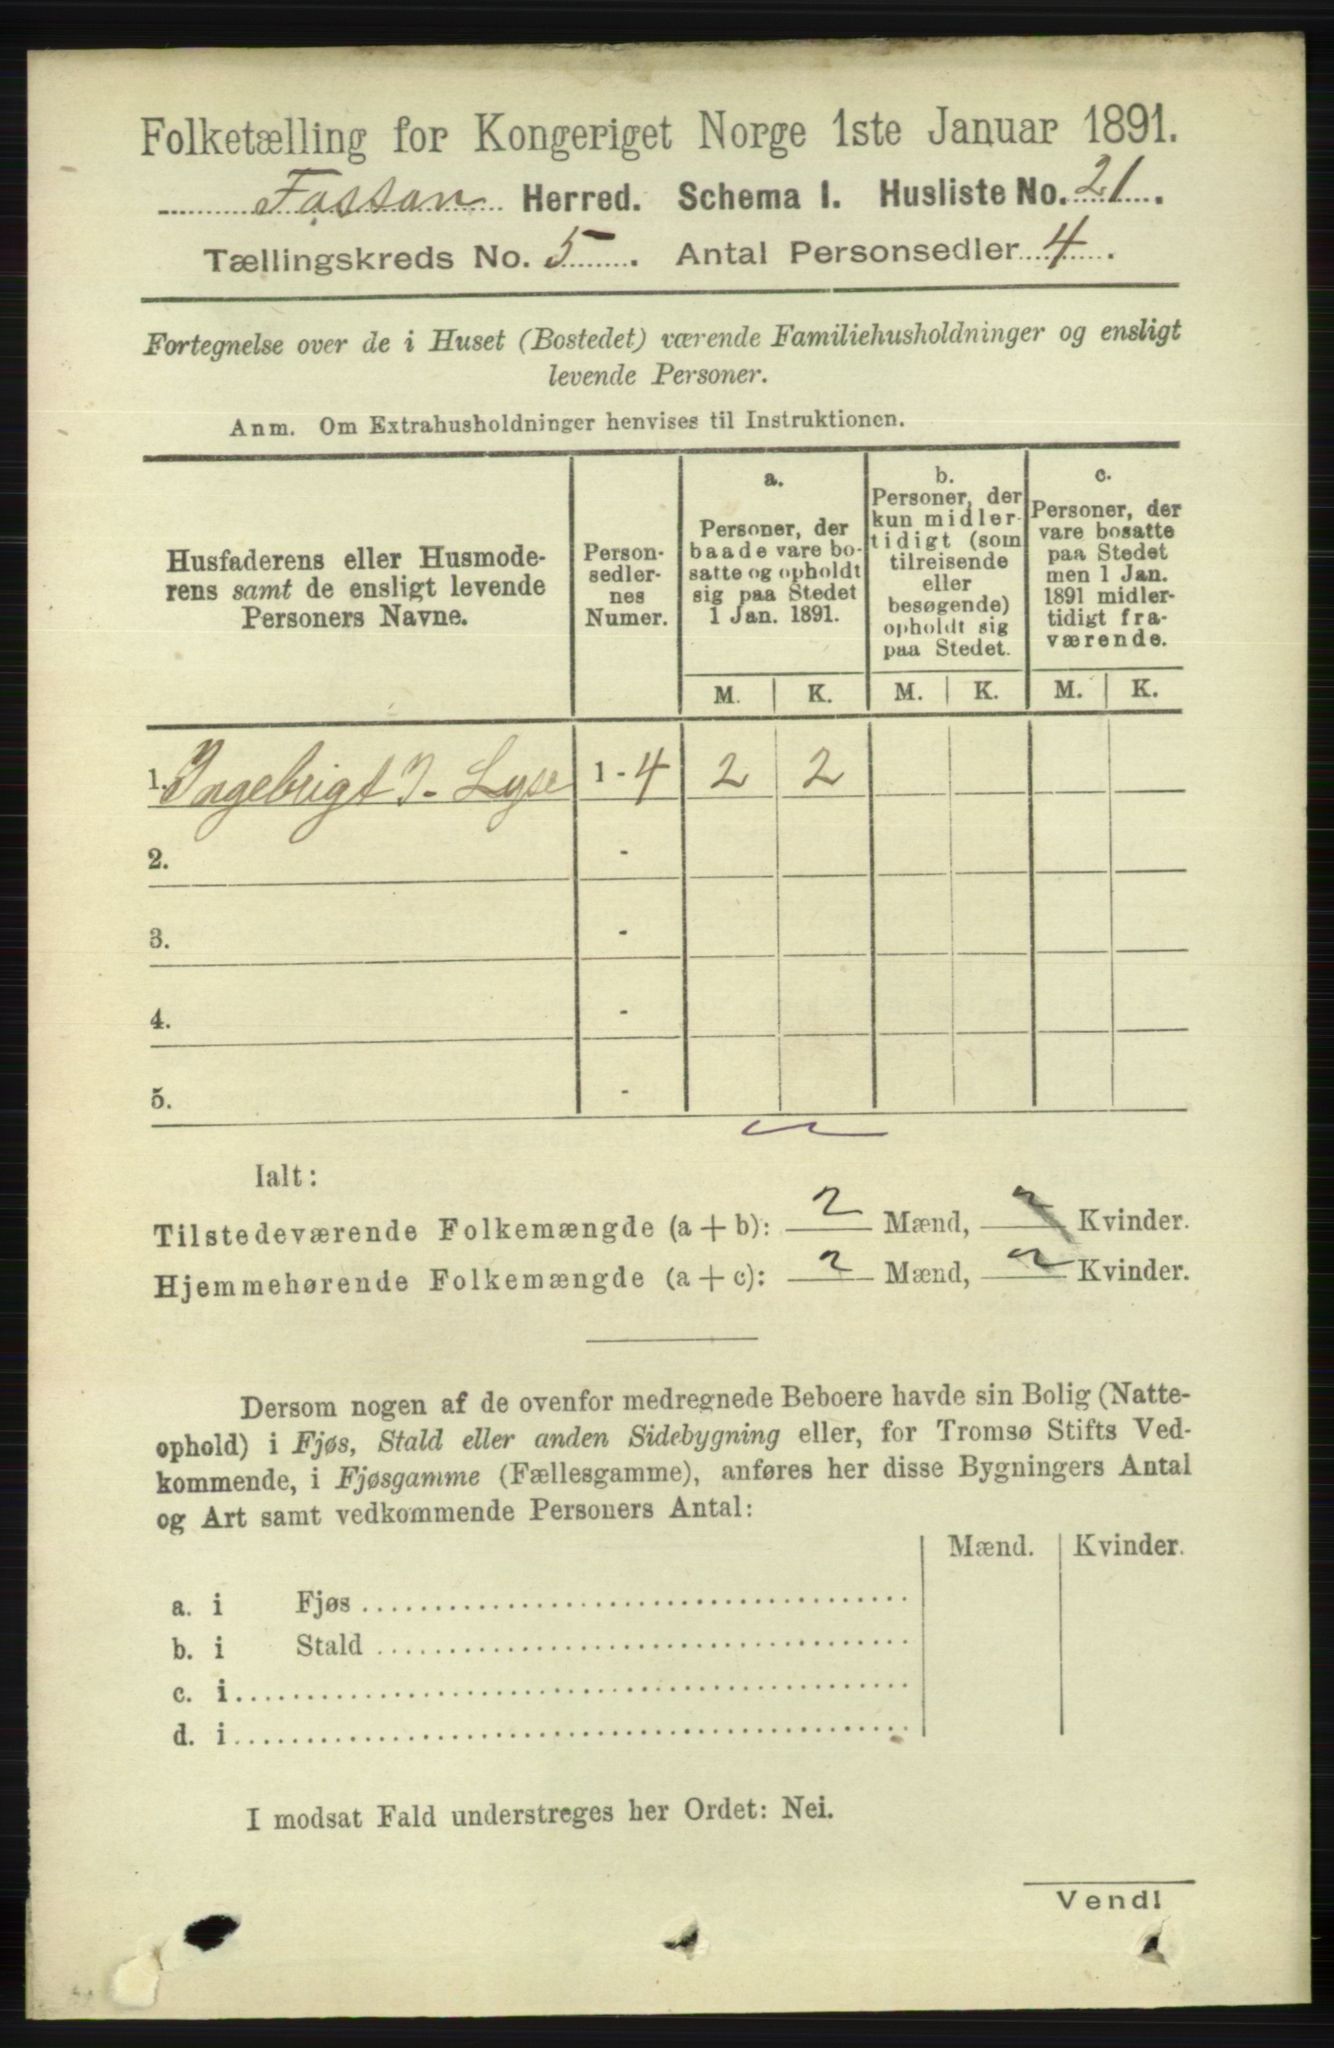 Folketælling for Kongeriget Norge 1ste Januar 1891.
Fossan Herred. Schema I. Husliste No. 21.
Tællingskreds No. 5. Antal Personsedler 4.
Fortegnelse over de i Huset (Bostedet) værende Familiehusholdninger og ensligt
levende Personer.
Anm. Om Extrahusholdninger henvises til Instruktionen.
Husfaderens eller Husmode-
rens samt de ensligt levende
Personers Navne.
Person-
sedler-
nes
Numer.
a.
Personer, der
baade vare bo-
satte og opholdt
sig paa Stedet
1 Jan. 1891.
b.
Personer, der
kun midler-
tidigt (som
tilreisende
eller
besøgende)
opholdt sig
paa Stedet.
c.
Personer, der
vare bosatte
paa Stedet
men 1 Jan.
1891 midler-
tidigt fra-
værende.
M. K. M. K. M. K.
1. Ingebrigt J. Lyse 1 - 4 2 2
2. -
3. -
4. -
5. -
Ialt:
Tilstedeværende Folkemængde (a + b): 2 Mænd, 2 Kvinder.
Hjemmehørende Folkemængde (a + c): 2 Mænd, 2 Kvinder.
Dersom nogen af de ovenfor medregnede Beboere havde sin Bolig (Natte-
ophold) i Fjøs, Stald eller anden Sidebygning eller, for Tromsø Stifts Ved-
kommende, i Fjøsgamme (Fællesgamme), anføres her disse Bygningers Antal
og Art samt vedkommende Personers Antal:
Mænd. Kvinder.
a. i Fjøs
b. i Stald
c. i
d. i
I modsat Fald understreges her Ordet: Nei.
Vend!